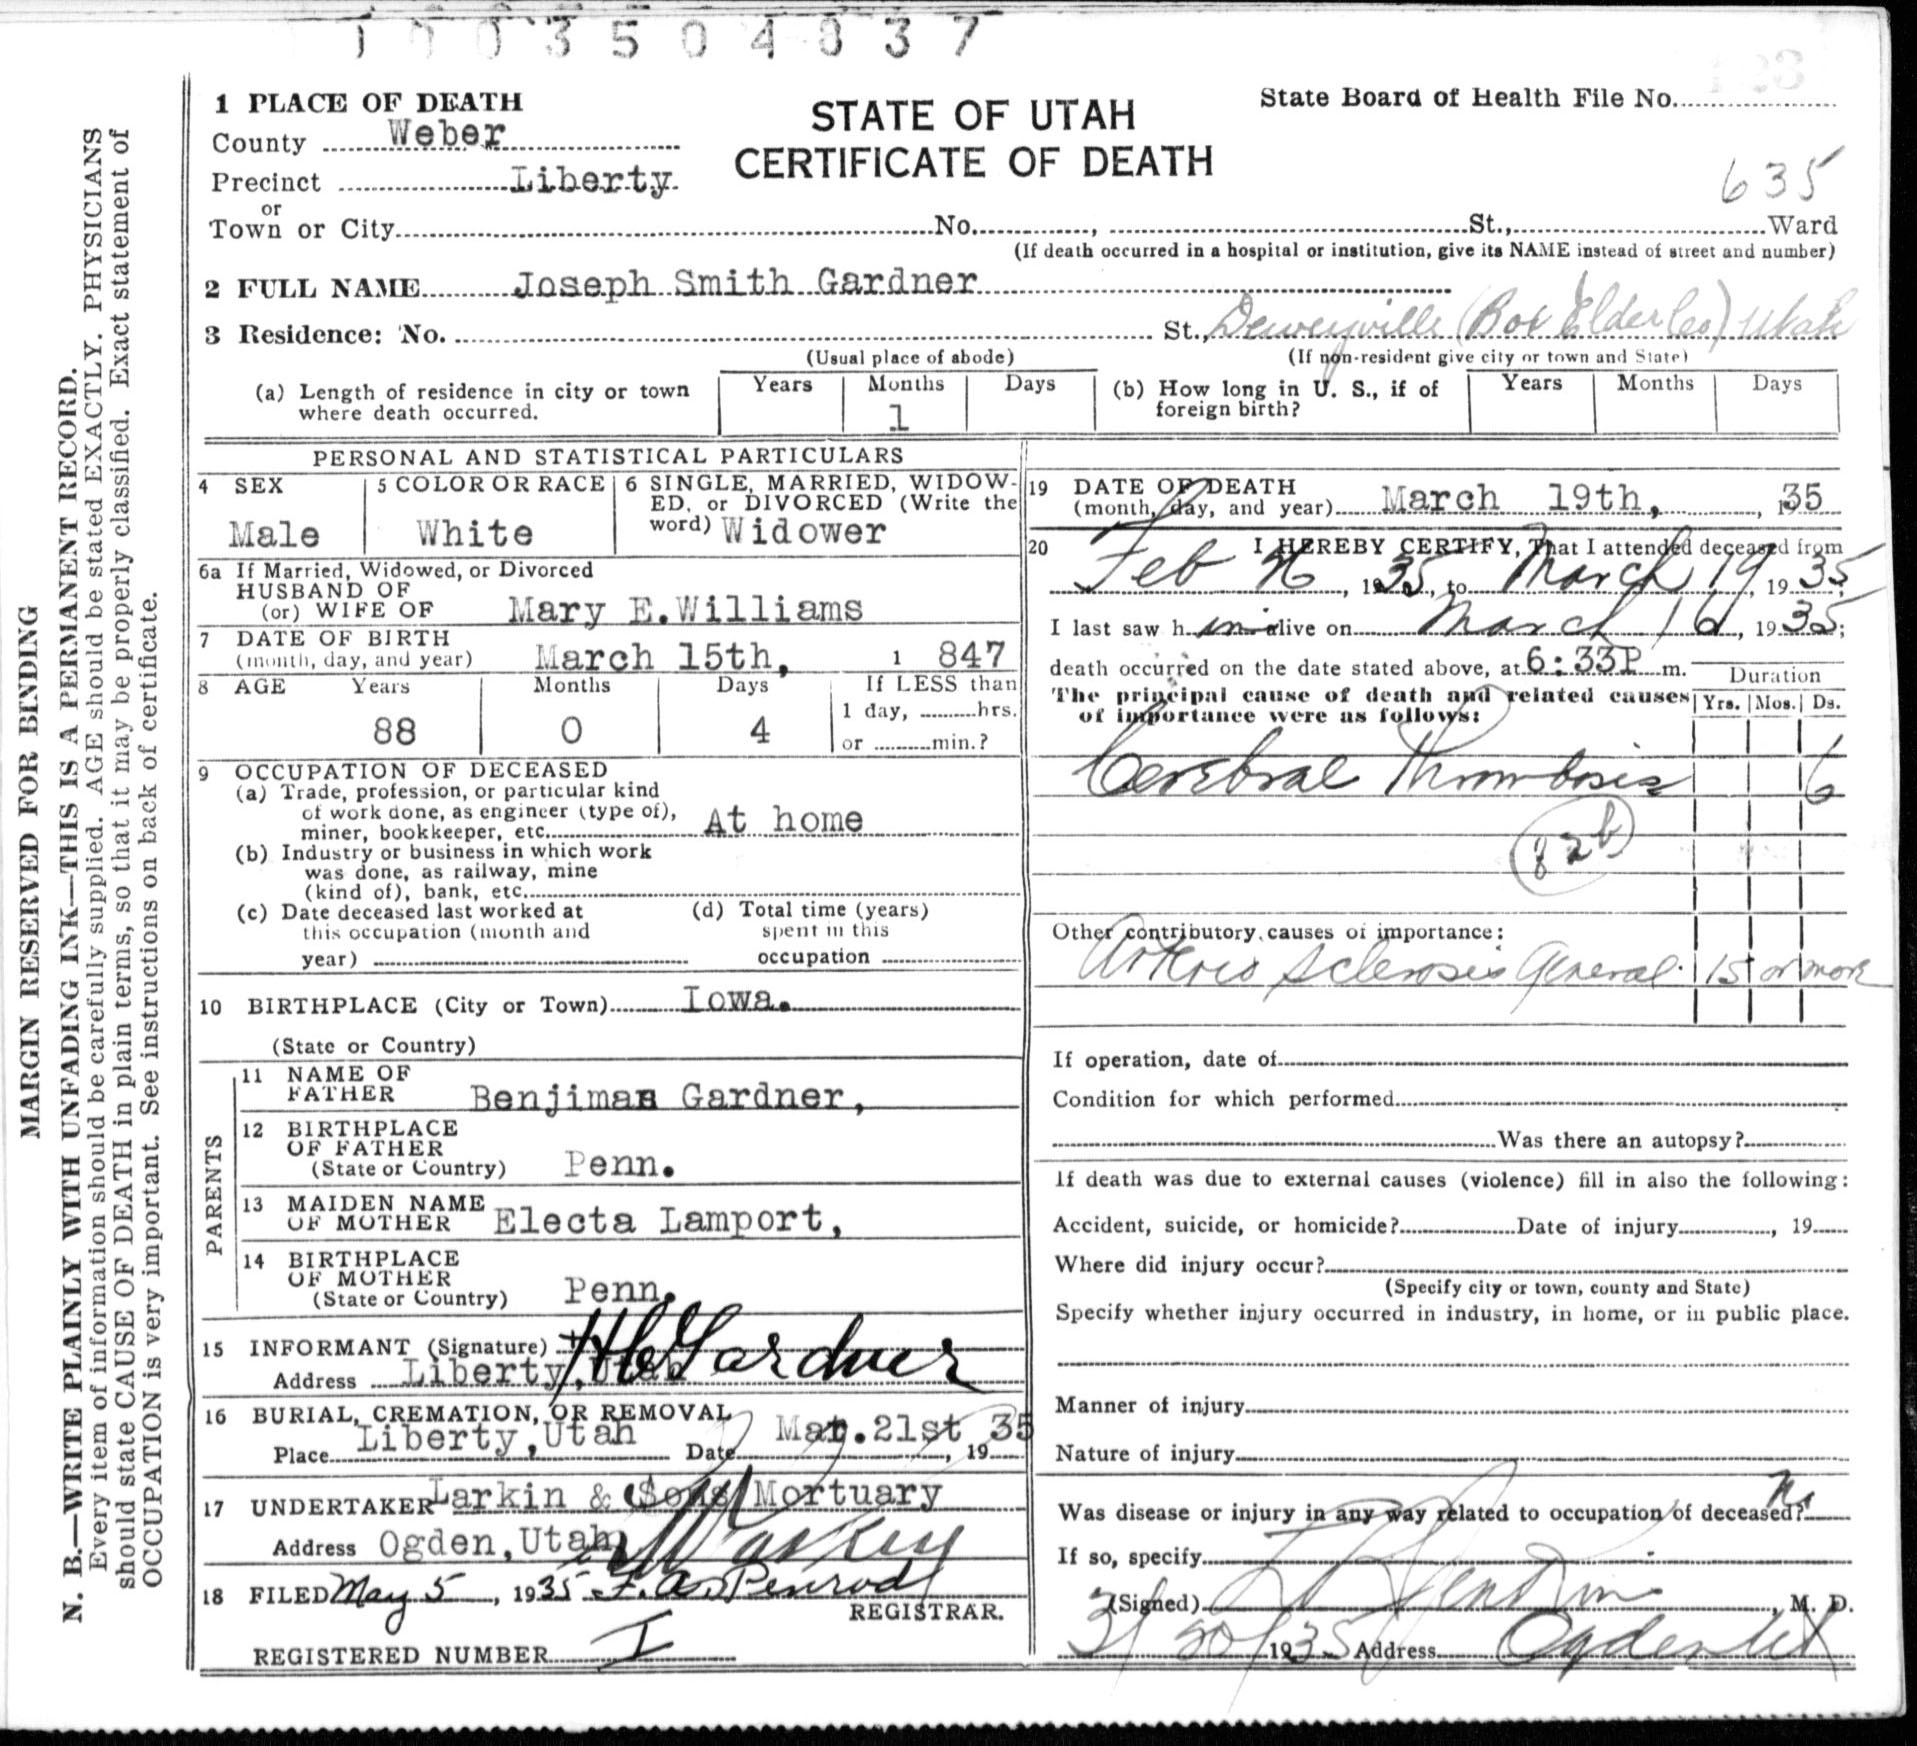 1003504837
1 PLACE OF DEATH
STATE OF UTAH
CERTIFICATE OF DEATH
State Board of Health File No.
County Weber
Precinct Liberty
635
or
Town or City No. , St., Ward
(If death occurred in a hospital or institution, give its NAME instead of street and number)
2 FULL NAME Joseph Smith Gardner
3 Residence: No. St., Deweyville (Box Elder Co) Utah
(Usual place of abode) (If non-resident give city or town and State)
(a) Length of residence in city or town where death occurred. Years Months 1 Days
(b) How long in U. S., if of foreign birth? Years Months Days
PERSONAL AND STATISTICAL PARTICULARS
4 SEX Male
5 COLOR OR RACE White
6 SINGLE, MARRIED, WIDOW-
ED, or DIVORCED (Write the
word) Widower
6a If Married, Widowed, or Divorced
HUSBAND OF
(or) WIFE OF Mary E.Williams
7 DATE OF BIRTH
(month, day, and year) March 15th, 1 847
8 AGE Years 88 Months 0 Days 4
If LESS than
1 day, hrs.
or min.?
9 OCCUPATION OF DECEASED
(a) Trade, profession, or particular kind
of work done, as engineer (type of),
miner, bookkeeper, etc. At home
(b) Industry or business in which work
was done, as railway, mine
(kind of), bank, etc.
(c) Date deceased last worked at
this occupation (month and
year)
(d) Total time (years)
spent in this
occupation
10 BIRTHPLACE (City or Town) Iowa.
(State or Country)
PARENTS
11 NAME OF
FATHER Benjiman Gardner,
12 BIRTHPLACE
OF FATHER
(State or Country) Penn.
13 MAIDEN NAME
OF MOTHER Electa Lamport,
14 BIRTHPLACE
OF MOTHER
(State or Country) Penn.
15 INFORMANT (Signature) Gardner
Address Liberty,Utah
16 BURIAL, CREMATION, OR REMOVAL
Place Liberty,Utah Date Mar.21st, 19 35
17 UNDERTAKER Larkin & Sons Mortuary
Address Ogden,Utah
18 FILED May 5, 1935 F. A. Penrod
REGISTRAR.
REGISTERED NUMBER I
19 DATE OF DEATH
(month, day, and year) March 19th, , 1935
20 I HEREBY CERTIFY, That I attended deceased from
Feb , 1935, to March 19, 1935;
I last saw him alive on March 16, 1935;
death occurred on the date stated above, at 6:33P m.
Duration
The principal cause of death and related causes
of importance were as follows:
Yrs. Mos. Ds.
Cerebral Thrombosis 6
82b
Other contributory causes of importance:
Arterio Sclerosis General. 15 or more
If operation, date of
Condition for which performed
Was there an autopsy?
If death was due to external causes (violence) fill in also the following:
Accident, suicide, or homicide? Date of injury , 19
Where did injury occur?
(Specify city or town, county and State)
Specify whether injury occurred in industry, in home, or in public place.
Manner of injury
Nature of injury
Was disease or injury in any way related to occupation of deceased? No
If so, specify
(Signed) , M. D.
3/20/1935 Address Ogden Ut
MARGIN RESERVED FOR BINDING
N. B.—WRITE PLAINLY WITH UNFADING INK—THIS IS A PERMANENT RECORD.
Every item of information should be carefully supplied. AGE should be stated EXACTLY. PHYSICIANS
should state CAUSE OF DEATH in plain terms, so that it may be properly classified. Exact statement of
OCCUPATION is very important. See instructions on back of certificate.